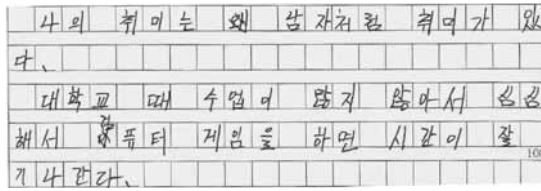 나의 취미는 남자처럼 취미가 있
다.
대학교 때 수업이 많지 않아서 심심
해서 컴퓨터 게임을 하면 시간이 잘
100
기나간다.